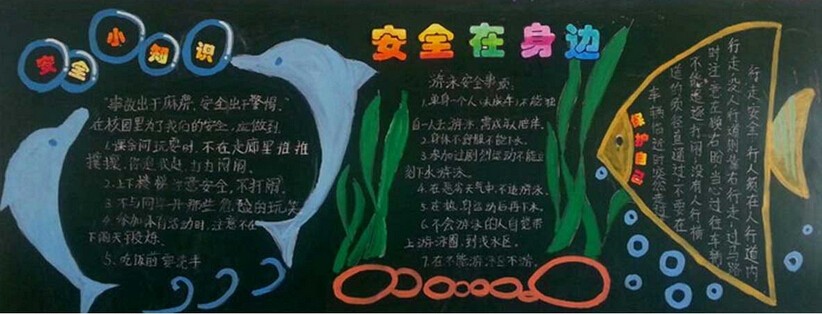 安全小知识
"事故出于麻痹,安全出于警惕。"
在校园里为了我们的安全,应做到
1.课余间玩耍时,不在走廊里推推
搡搡,你追我赶,打打闹闹。
2.上下楼梯注意安全,不打闹。
3.不与同学开那些危险的玩笑
4.参加体育活动时,注意不在
下雨天
5.吃饭前要洗手
安全在身边
游泳安全事项:
1.单身一个人(未成年)不能独
自一人去游泳,需成年人陪伴。
2.身体不舒服不能下水。
3.参加过剧烈运动不能立
刻下水游泳。
4.在恶劣天气中,不适游泳。
5.在热身活动后再下水。
6.不会游泳的人自觉带
上游泳圈,到浅水区。
7.在不能游泳区不游。
保护自己
行走安全:行人须在人行道内
行走,没人行道则靠右行走;过马路
时注意左顾右盼,当心过往车辆
不能追逐打闹;没有人行横
道的须径直通过,不要在
车辆临近时突然走过